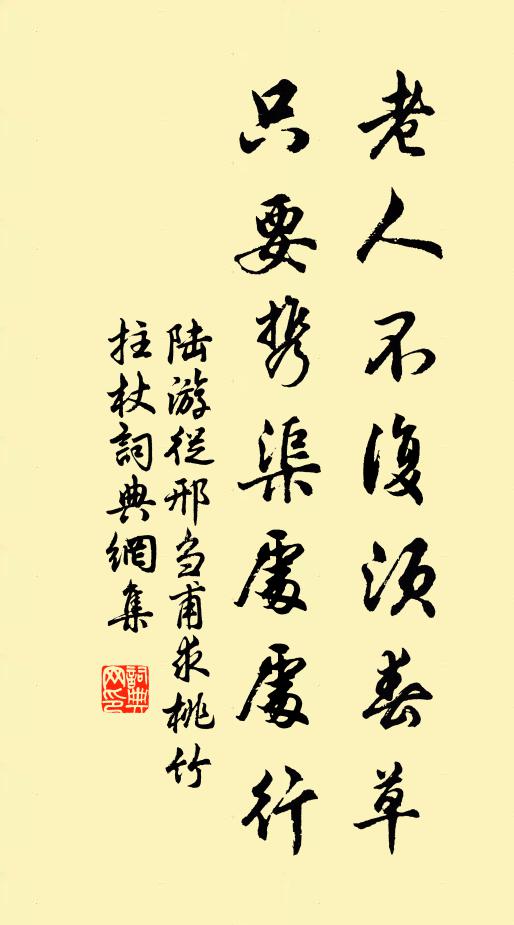 老人不復須春草
只要携渠處處行
陸游從邢芻甫求桃竹
拄杖詞典網集
詞典
网印